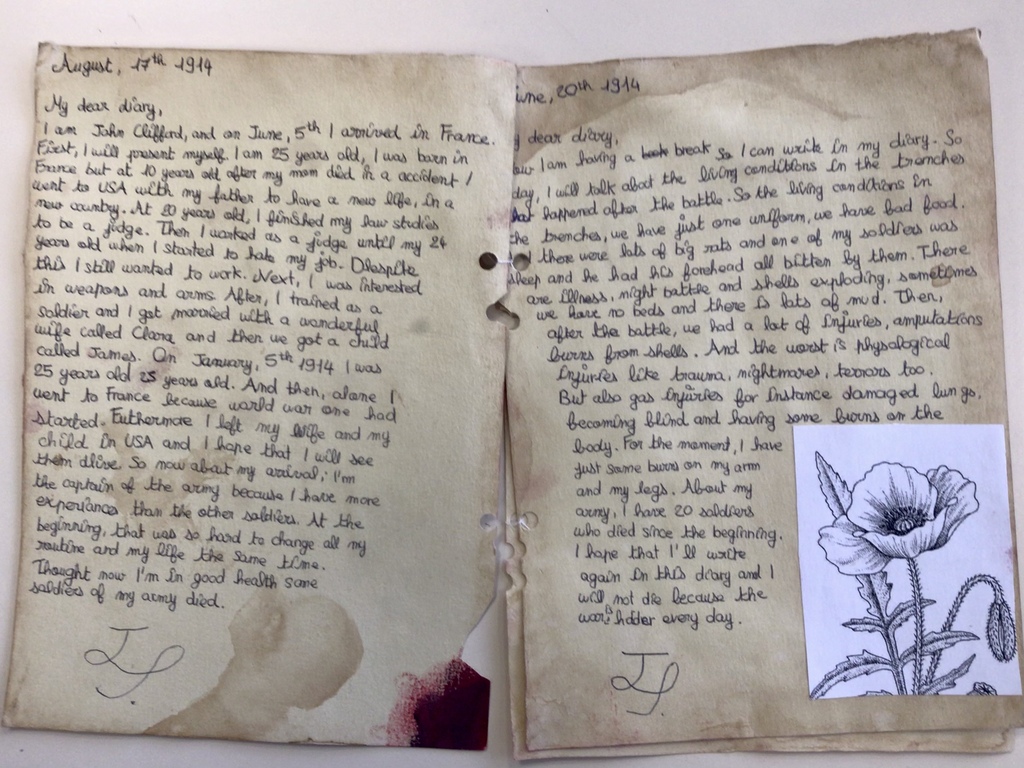 August, 17th 1914
My dear diary,
I am John Clifford, and on June, 5th I arrived in France.
First, I will present myself. I am 25 years old, I was born in
France but at 10 years old after my mom died in a accident I
went to USA with my father to have a new life, in a
new country. At 20 years old, I finished my law studies
to be a jidge. Then I worked as a jidge until my 24
years old when I started to hate my job. Diespite
this I still wanted to work. Next, I was interested
in weapons and arms. After, I trained as a
soldier and I got married with a wonderful
wife called Clara and then we got a child
called James. On January, 5th 1914 I was
25 years old 25 years old. And then, alone I
went to France because world war one had
started. Futhermore I left my wife and my
child in USA and I hope that I will see
them alive. So now about my arrival; I'm
the captain of the army because I have more
experiances than the other soldiers. At the
beginning, that was so hard to change all my
routine and my life the same time.
Thought now I'm in good health some
soldiers of my army died.
une, 20th 1914
y dear diary,
ow I am having a break so I can write in my diary. So
day, I will talk about the living conditions in the trenches
hat happened after the battle. So the living conditions in
the trenches, we have just one uniform, we have bad food.
there were lots of big rats and one of my soldiers was
sleep and he had his forehead all bitten by them. There
are illness, night battle and shells exploding, sometimes
we have no beds and there is lots of mud. Then,
after the battle, we had a lot of injuries, amputations
burns from shells. And the worst is physological
injuries like trauma, nightmares, terrors too.
But also gas injuries for instance damaged lungs,
becoming blind and having some burns on the
body. For the moment, I have
just some burns on my arm
and my legs. About my
army, I have 20 soldiers
who died since the beginning.
I hope that I'll write
again in this diary and I
will not die because the
war is harder every day.